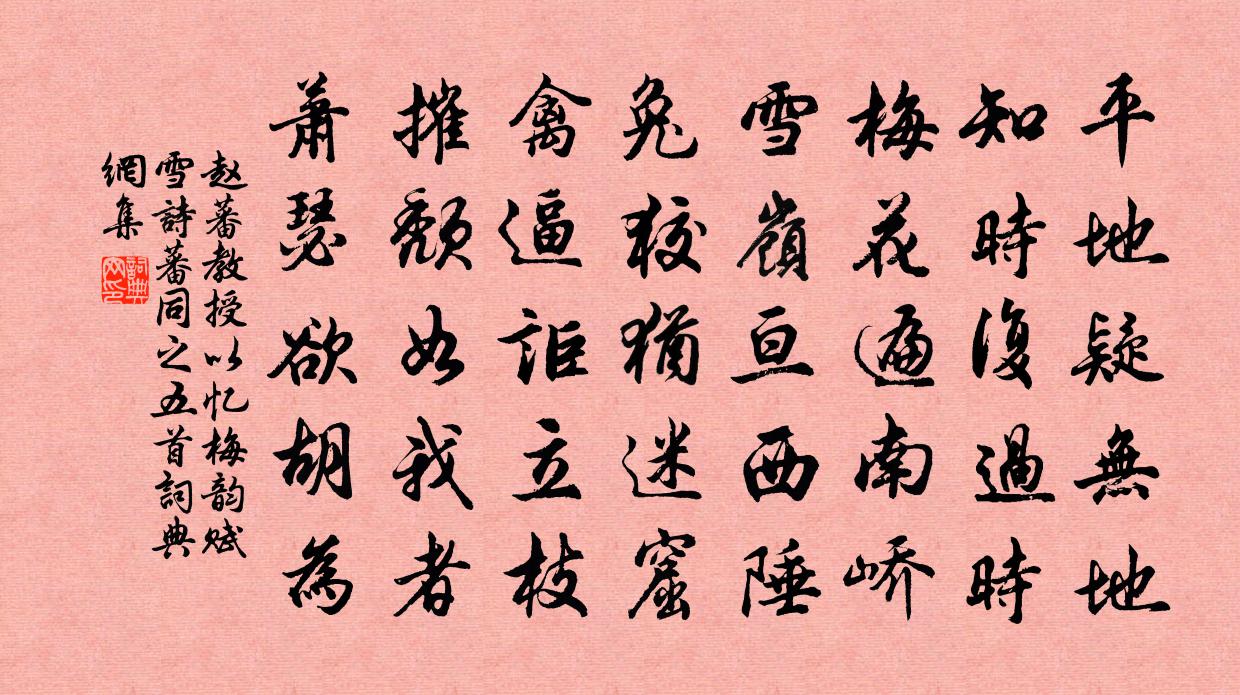 平地疑無地
知時復過時
梅花遍南嶠
雪嶺亘西陲
兔狡猶迷窟
禽逼詎立枝
摧頹如我者
萧瑟欲胡為
赵蕃教授以忆梅韵赋
雪詩蕃同之五首詞典
網集
詞典
网印